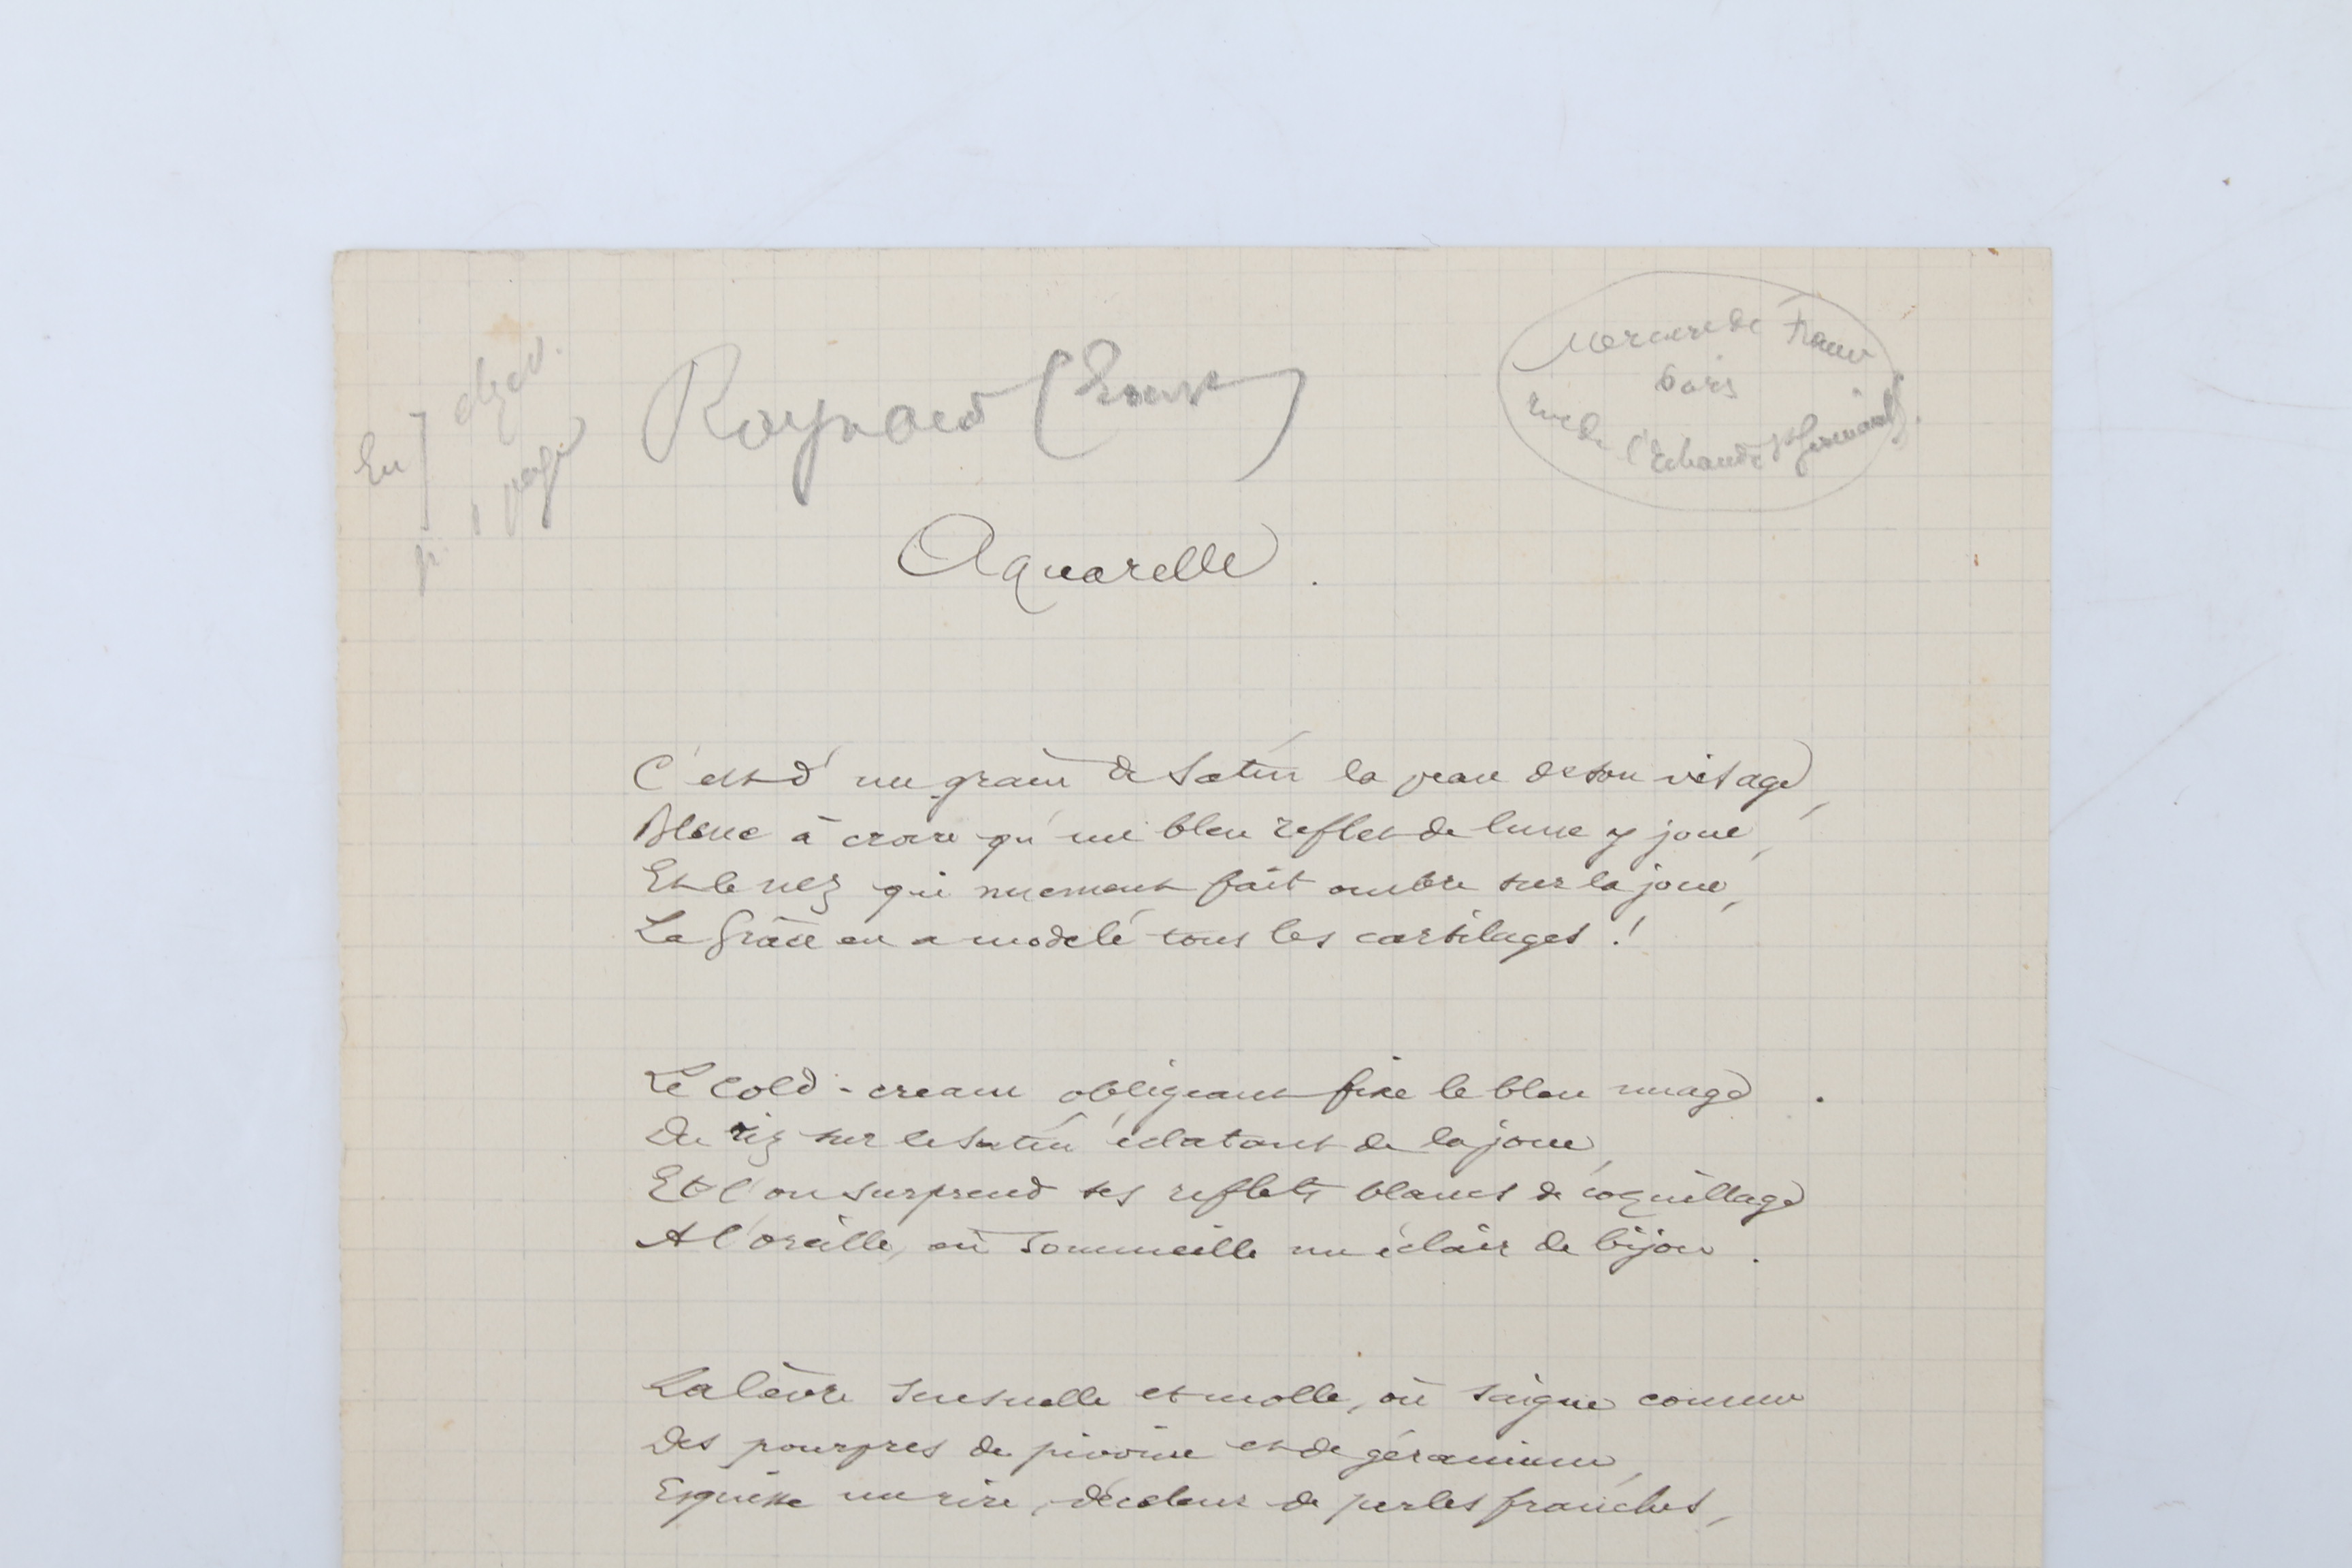 Raynaud (Ernest)
Mercure de France
Paris
rue de l'Echaudé St Germain
En
1 page
Aquarelle.
C'est d'un grain de satin la peau de son visage,
Blanc à croire qu'un bleu reflet de lune y joue,
Et le nez qui nuement fait ombre sur la joue,
La Grâce en a modelé tous les cartilages !
Le Cold-cream obligeant fixe le bleu nuage
Du riz sur le satin éclatant de la joue,
Et l'on surprend ses reflets blancs de coquillage
A l'oreille, où sommeille un éclair de bijou.
La lèvre sensuelle et molle, où saigne comme
Des pourpres de pivoine et de géranium,
Esquisse un rire, de perles franches,